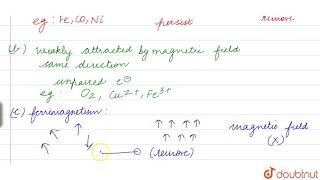 eg : Fe, CO, Ni persist remove
(b) weakly attracted by magnetic field
same direction
unpaired e⊖
eg : O₂, Cu²⁺, Fe³⁺
(c) ferrimagnetism :
magnetic field
(remove) (X)
doubtnut